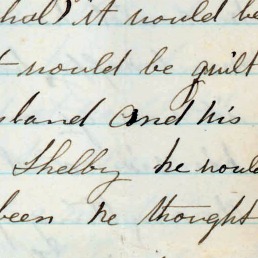 hal) it would be
t would be guilt
sland and his
Shelby he woul
been he thought